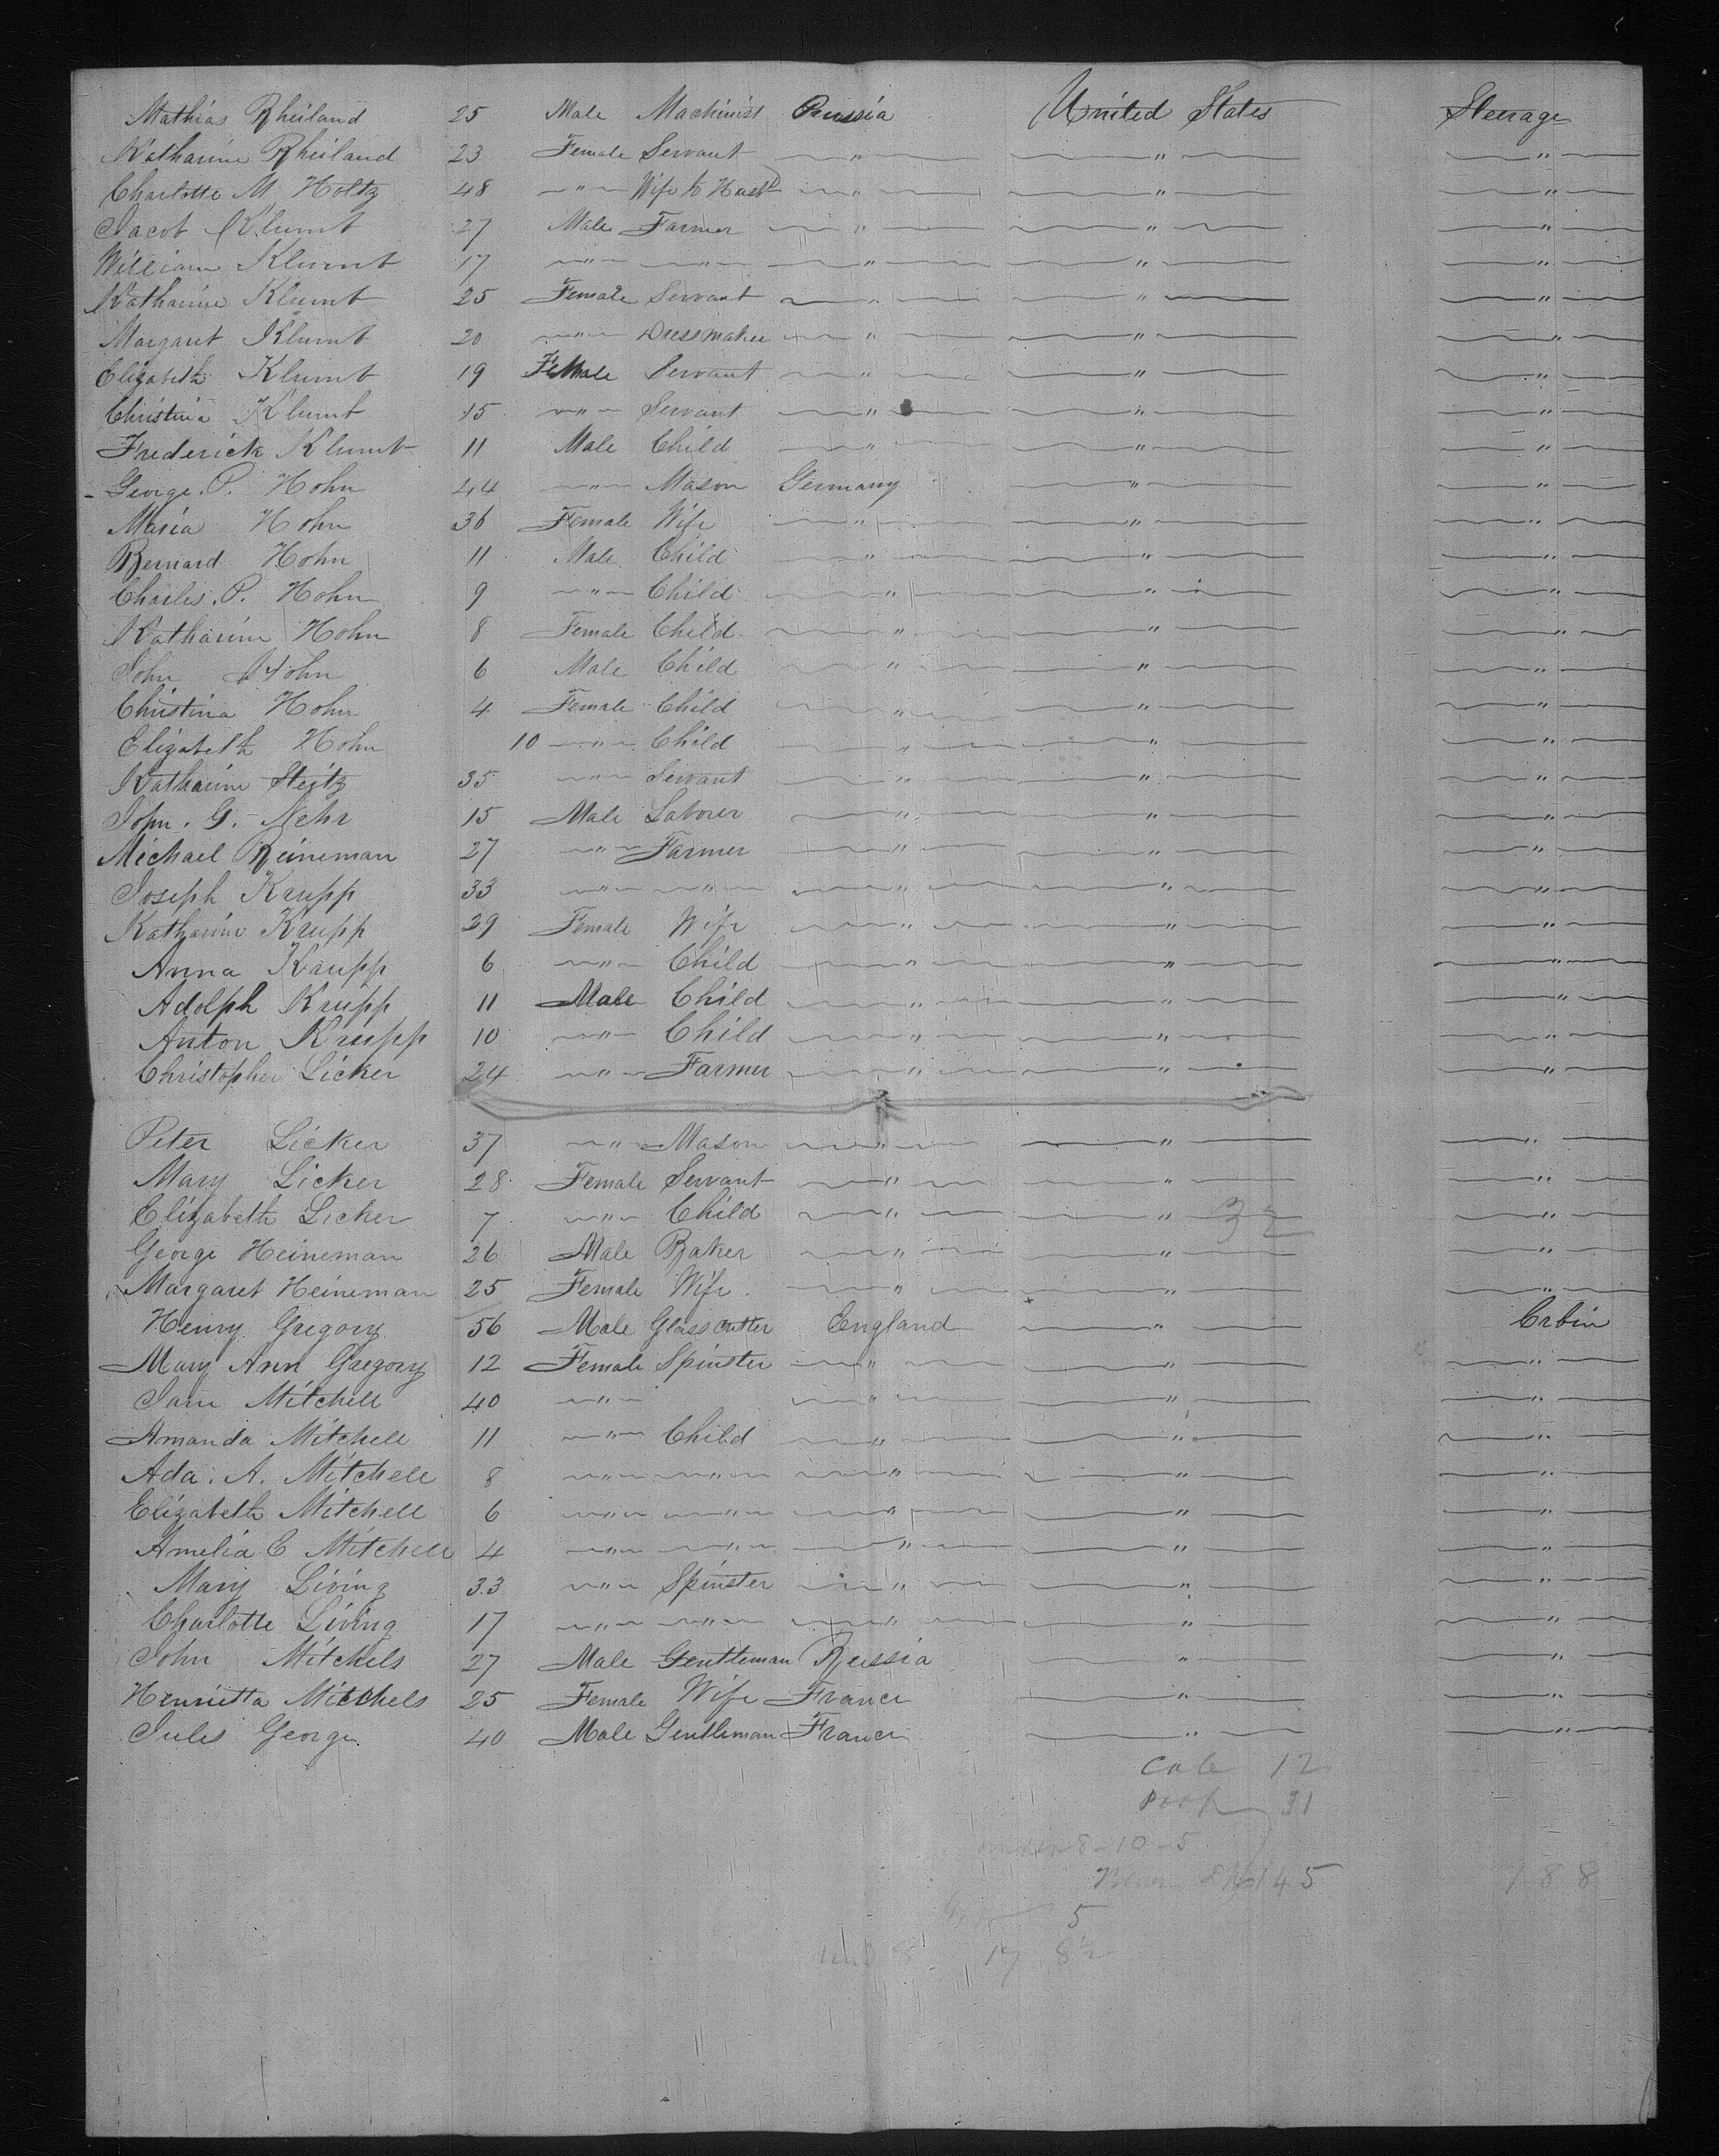 Mathias Rheiland 25 Male Machinist Prussia United States Steerage
Katharine Rheiland 23 Female Servant " " "
Charlotte M Holtz 48 " Wife to Husb " " "
Jacob Klumb 27 Male Farmer " " "
William Klumb 17 " " " " "
Katharine Klumb 25 Female Servant " " "
Margaret Klumb 20 " Dressmaker " " "
Elizabeth Klumb 19 Female Servant " " "
Christina Klumb 15 " Servant " " "
Frederick Klumb 11 Male Child " " "
George. P. Hohn 44 " Mason Germany " "
Maria Hohn 36 Female Wife " " "
Bernard Hohn 11 Male Child " " "
Charles. P. Hohn 9 " Child " " "
Katharine Hohn 8 Female Child " " "
John Hohn 6 Male Child " " "
Christina Hohn 4 Female Child " " "
Elizabeth Hohn 10 " Child " " "
Katharine Steitz 35 " Servant " " "
John. G. Mehr 15 Male Laborer " " "
Michael Reineman 27 " Farmer " " "
Joseph Krupp 33 " " " " "
Katharine Krupp 29 Female Wife " " "
Anna Krupp 6 " Child " " "
Adolph Krupp 11 Male Child " " "
Anton Krupp 10 " Child " " "
Christopher Licker 24 " Farmer " " "
Peter Licker 37 " Mason " " "
Mary Licker 28 Female Servant " " "
Elizabeth Licker 7 " Child " " 32 "
George Heineman 26 Male Baker " " "
Margaret Heineman 25 Female Wife " " "
Henry Gregory 56 Male Glass Cutter England " Cabin
Mary Ann Gregory 12 Female Spinster " " "
Jane Mitchell 40 " " " "
Amanda Mitchell 11 " Child " " "
Ada. A. Mitchell 8 " " " " "
Elizabeth Mitchell 6 " " " " "
Amelia E Mitchell 4 " " " " "
Mary Living 33 " Spinster " " "
Charlotte Living 17 " " " " "
John Mitchels 27 Male Gentleman Russia " "
Henrietta Mitchels 25 Female Wife France " "
Jules George 40 Male Gentleman France " "
12
31
8-10-5
145 188
5
17 8½